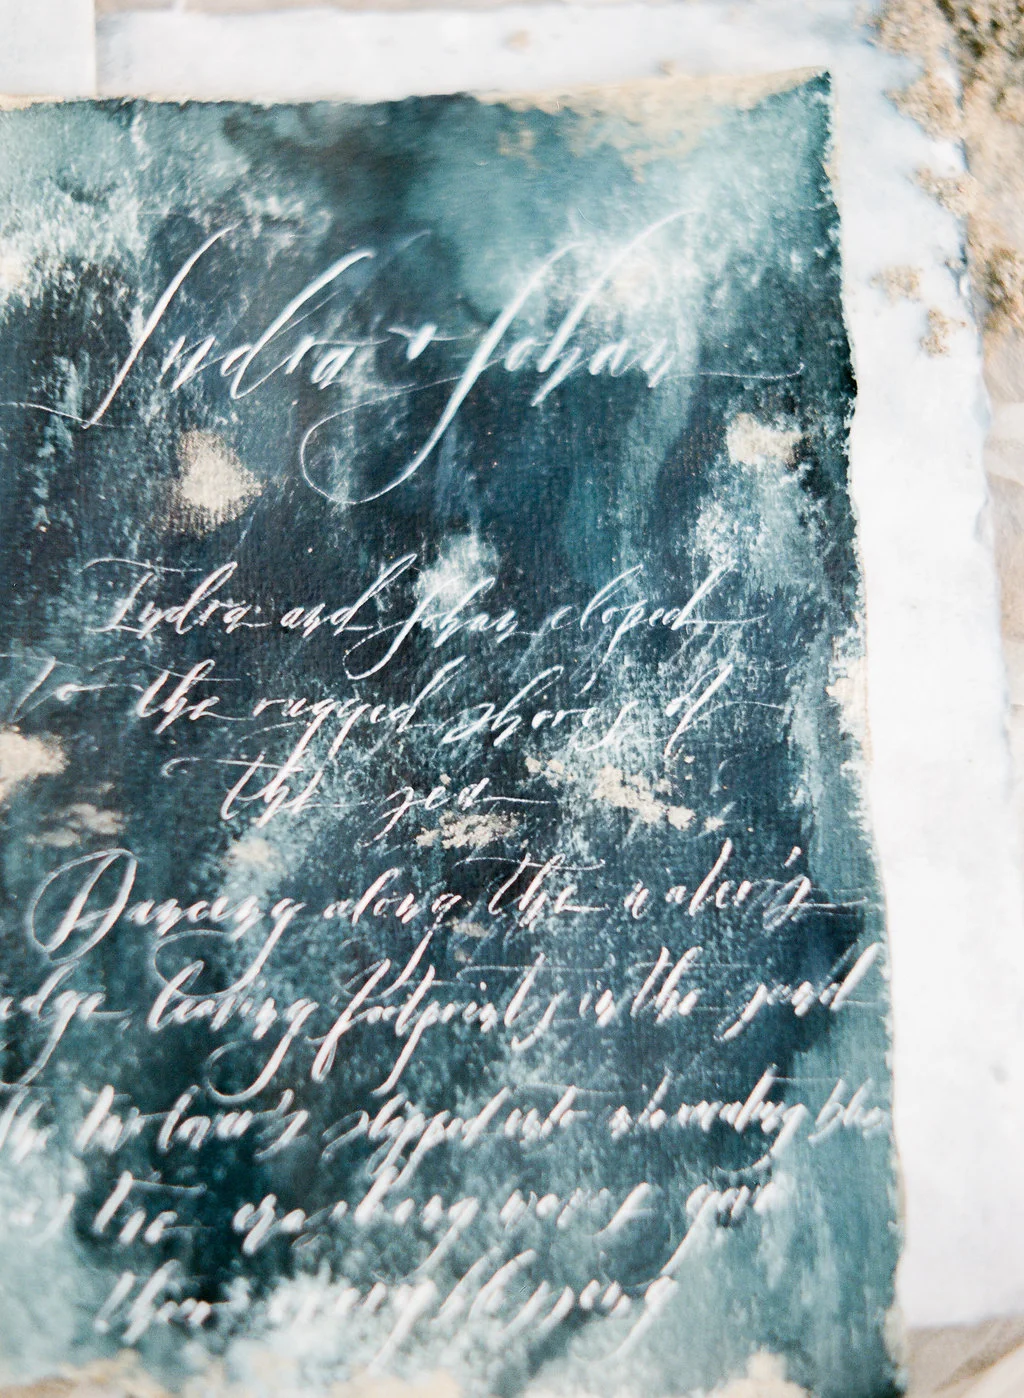 Indra & Johan
Indra and Johan eloped
To the rugged shores of
the sea
Dancing along the water's
edge, leaving footprints in the sand
the two lovers slipped into neverending bliss
The crashing waves gave
them every blessing